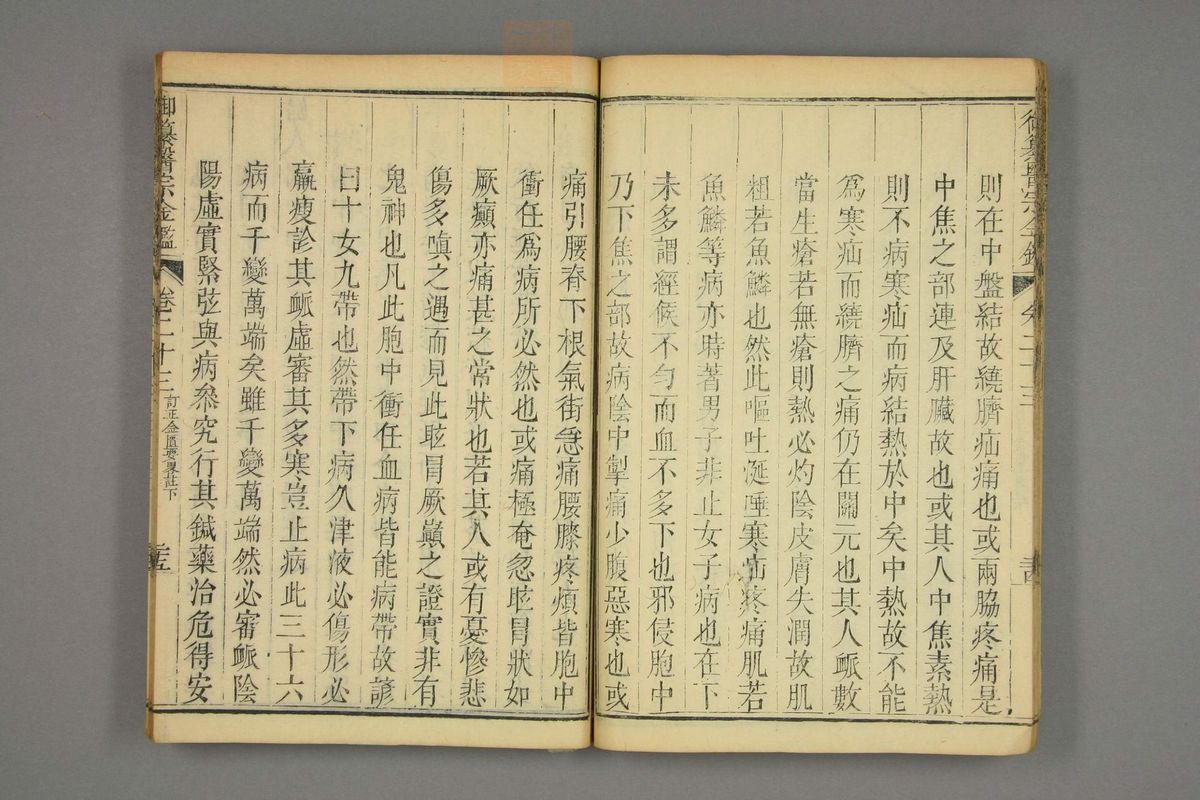 御纂醫宗金鑑 卷二十三
則在中盤結故繞臍疝痛也或兩脇疼痛是
中焦之部連及肝臟故也或其人中焦素熱
則不病寒疝而病結熱於中矣中熱故不能
爲寒疝而繞臍之痛仍在關元也其人脈數
當生瘡若無瘡則熱必灼陰皮膚失潤故肌
粗若魚鱗也然此嘔吐涎唾寒疝疼痛肌若
魚鱗等病亦時著男子非止女子病也在下
未多謂經候不勻而血不多下也邪侵胞中
乃下焦之部故病陰中掣痛少腹惡寒也或
痛引腰脊下根氣街急痛腰膝疼煩皆胞中
衝任爲病所必然也或痛極奄忽眩冒狀如
厥癲亦痛甚之常狀也若其人或有憂慘悲
傷多嗔之遇而見此眩冒厥巔之證實非有
鬼神也凡此胞中衝任血病皆能病帶故諺
曰十女九帶也然帶下病久津液必傷形必
羸瘦診其脈虛審其多寒豈止病此三十六
病而千變萬端矣雖千變萬端然必審脈陰
陽虛實緊弦與病叅究行其鍼藥治危得安
御纂醫宗金鑑 卷二十三 訂正金匱要畧註下